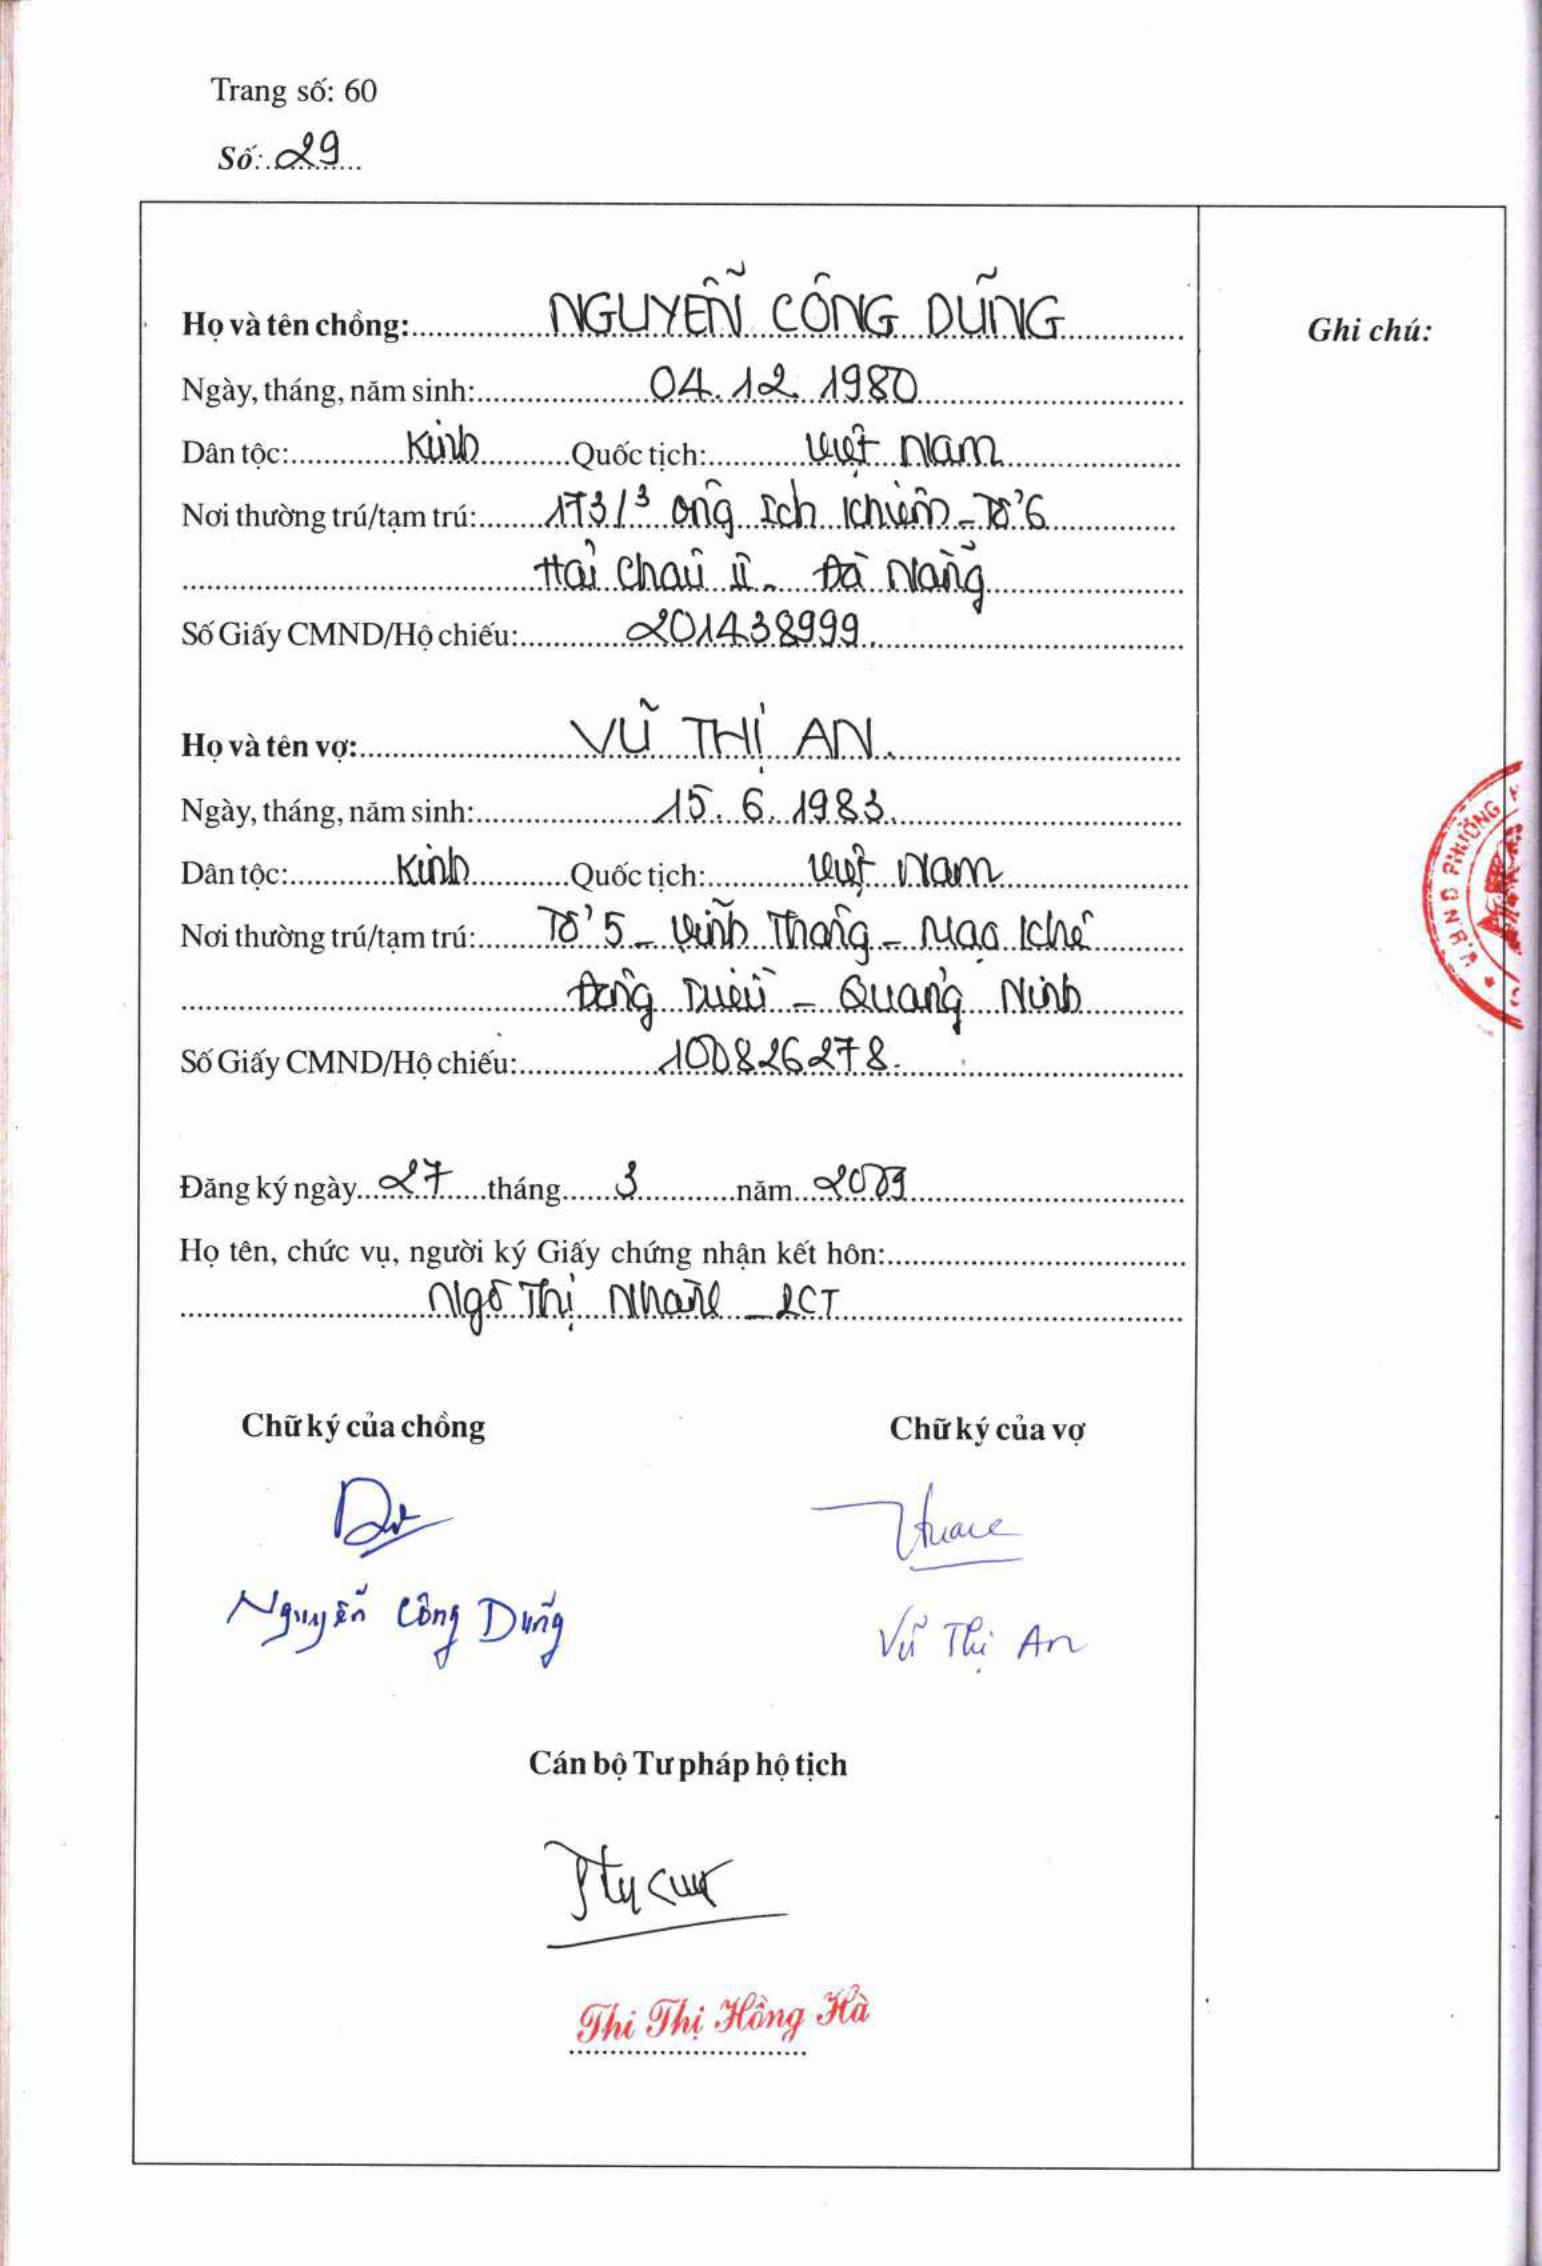 Trang số: 60
Số: 29
Họ và tên chồng: NGUYỄN CÔNG DŨNG
Ghi chú:
Ngày, tháng, năm sinh: 04.12.1980
Dân tộc: Kinh Quốc tịch: Việt Nam
Nơi thường trú/tạm trú: 173/3 Ông Ích Khiêm - Tổ 6
Hải Châu II - Đà Nẵng
Số Giấy CMND/Hộ chiếu: 201438999
Họ và tên vợ: VŨ THỊ AN.
Ngày, tháng, năm sinh: 15.6.1983
Dân tộc: Kinh Quốc tịch: Việt Nam
Nơi thường trú/tạm trú: Tổ 5 - Vĩnh Thắng - Mạo Khê
Đông Triều - Quảng Ninh
Số Giấy CMND/Hộ chiếu: 100826278.
U.B.N.D PHƯỜNG
Đăng ký ngày 27 tháng 3 năm 2009
Họ tên, chức vụ, người ký Giấy chứng nhận kết hôn:
Ngô Thị - CT
Chữ ký của chồng Chữ ký của vợ
Nguyễn Công Dũng
Vũ Thị An
Cán bộ Tư pháp hộ tịch
Thi Thị Hồng Hà